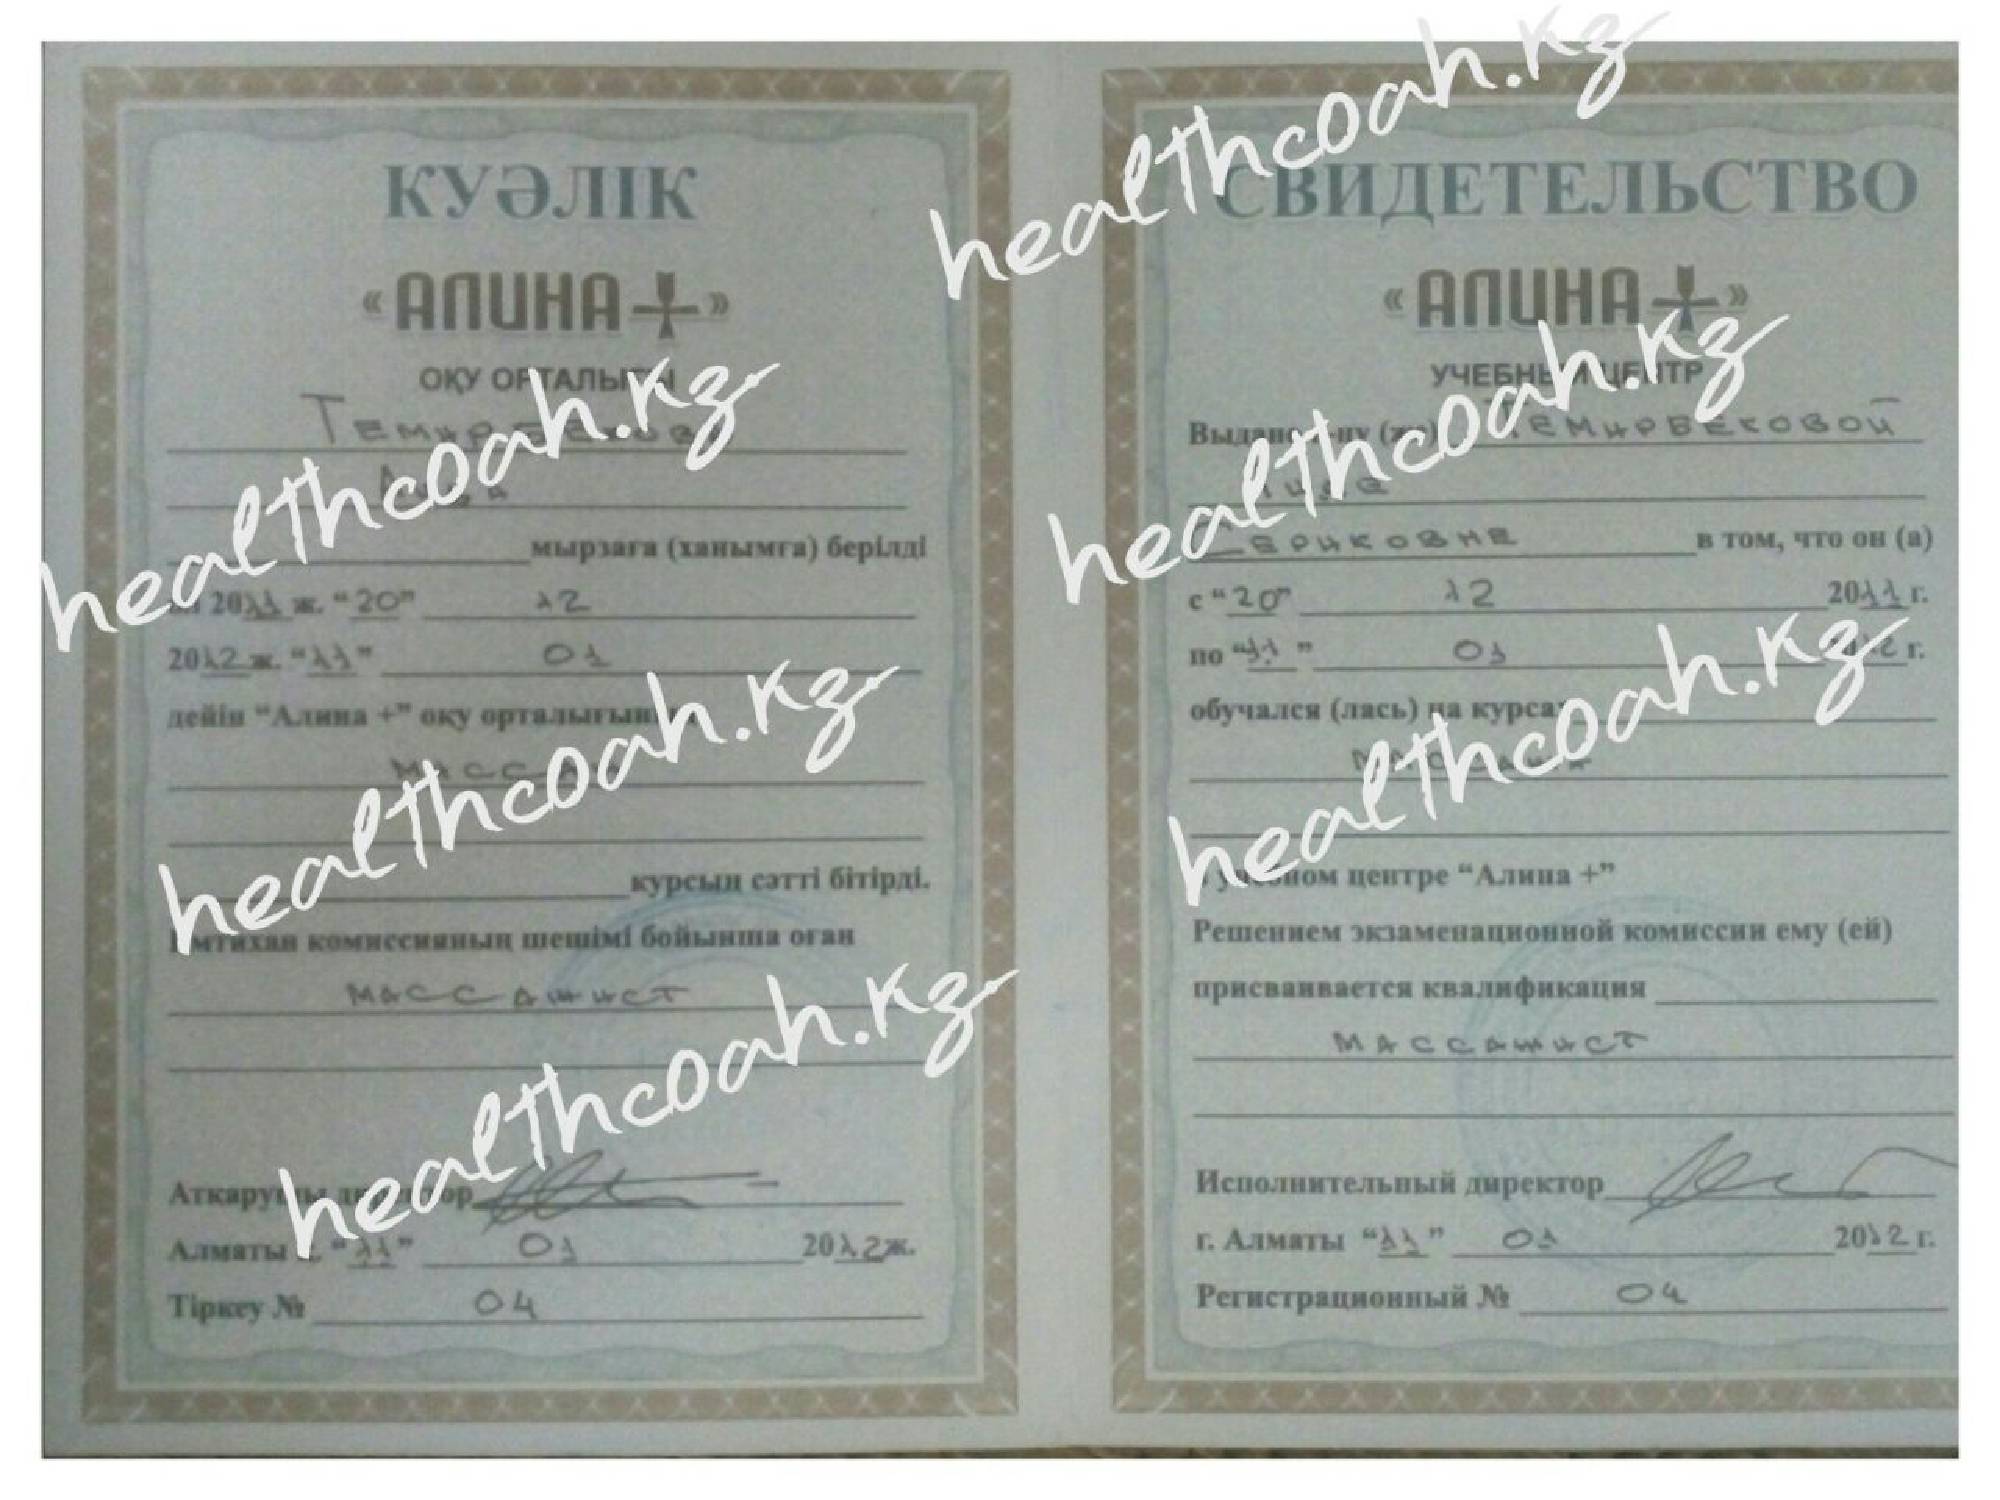 КУӘЛІК
«АЛИНА+»
ОҚУ ОРТАЛЫҒЫ
ТЕМИРБЕКОВА
мырзаға (ханымға) берілді
2011 ж. "20" 12
2012 ж. "11" 01
дейін "Алина +" оқу орталығының
курсын сәтті бітірді.
Емтихан комиссияның шешімі бойынша оған
МАССАЖИСТ
Атқарушы директор
Алматы г. "11" 01 2012 ж.
Тіркеу № 04
СВИДЕТЕЛЬСТВО
«АЛИНА+»
УЧЕБНЫЙ ЦЕНТР
Выдано ТЕМИРБЕКОВОЙ
СЕРИКОВНЕ в том, что он (а)
с "20" 12 2011 г.
по "11" 01 2012 г.
обучался (лась) на курсах
МАССАЖА
в учебном центре "Алина +"
Решением экзаменационной комиссии ему (ей)
присваивается квалификация
МАССАЖИСТ
Исполнительный директор
г. Алматы "11" 01 2012 г.
Регистрационный № 04
healthcoah.kz
healthcoah.kz
healthcoah.kz
healthcoah.kz
healthcoah.kz
healthcoah.kz